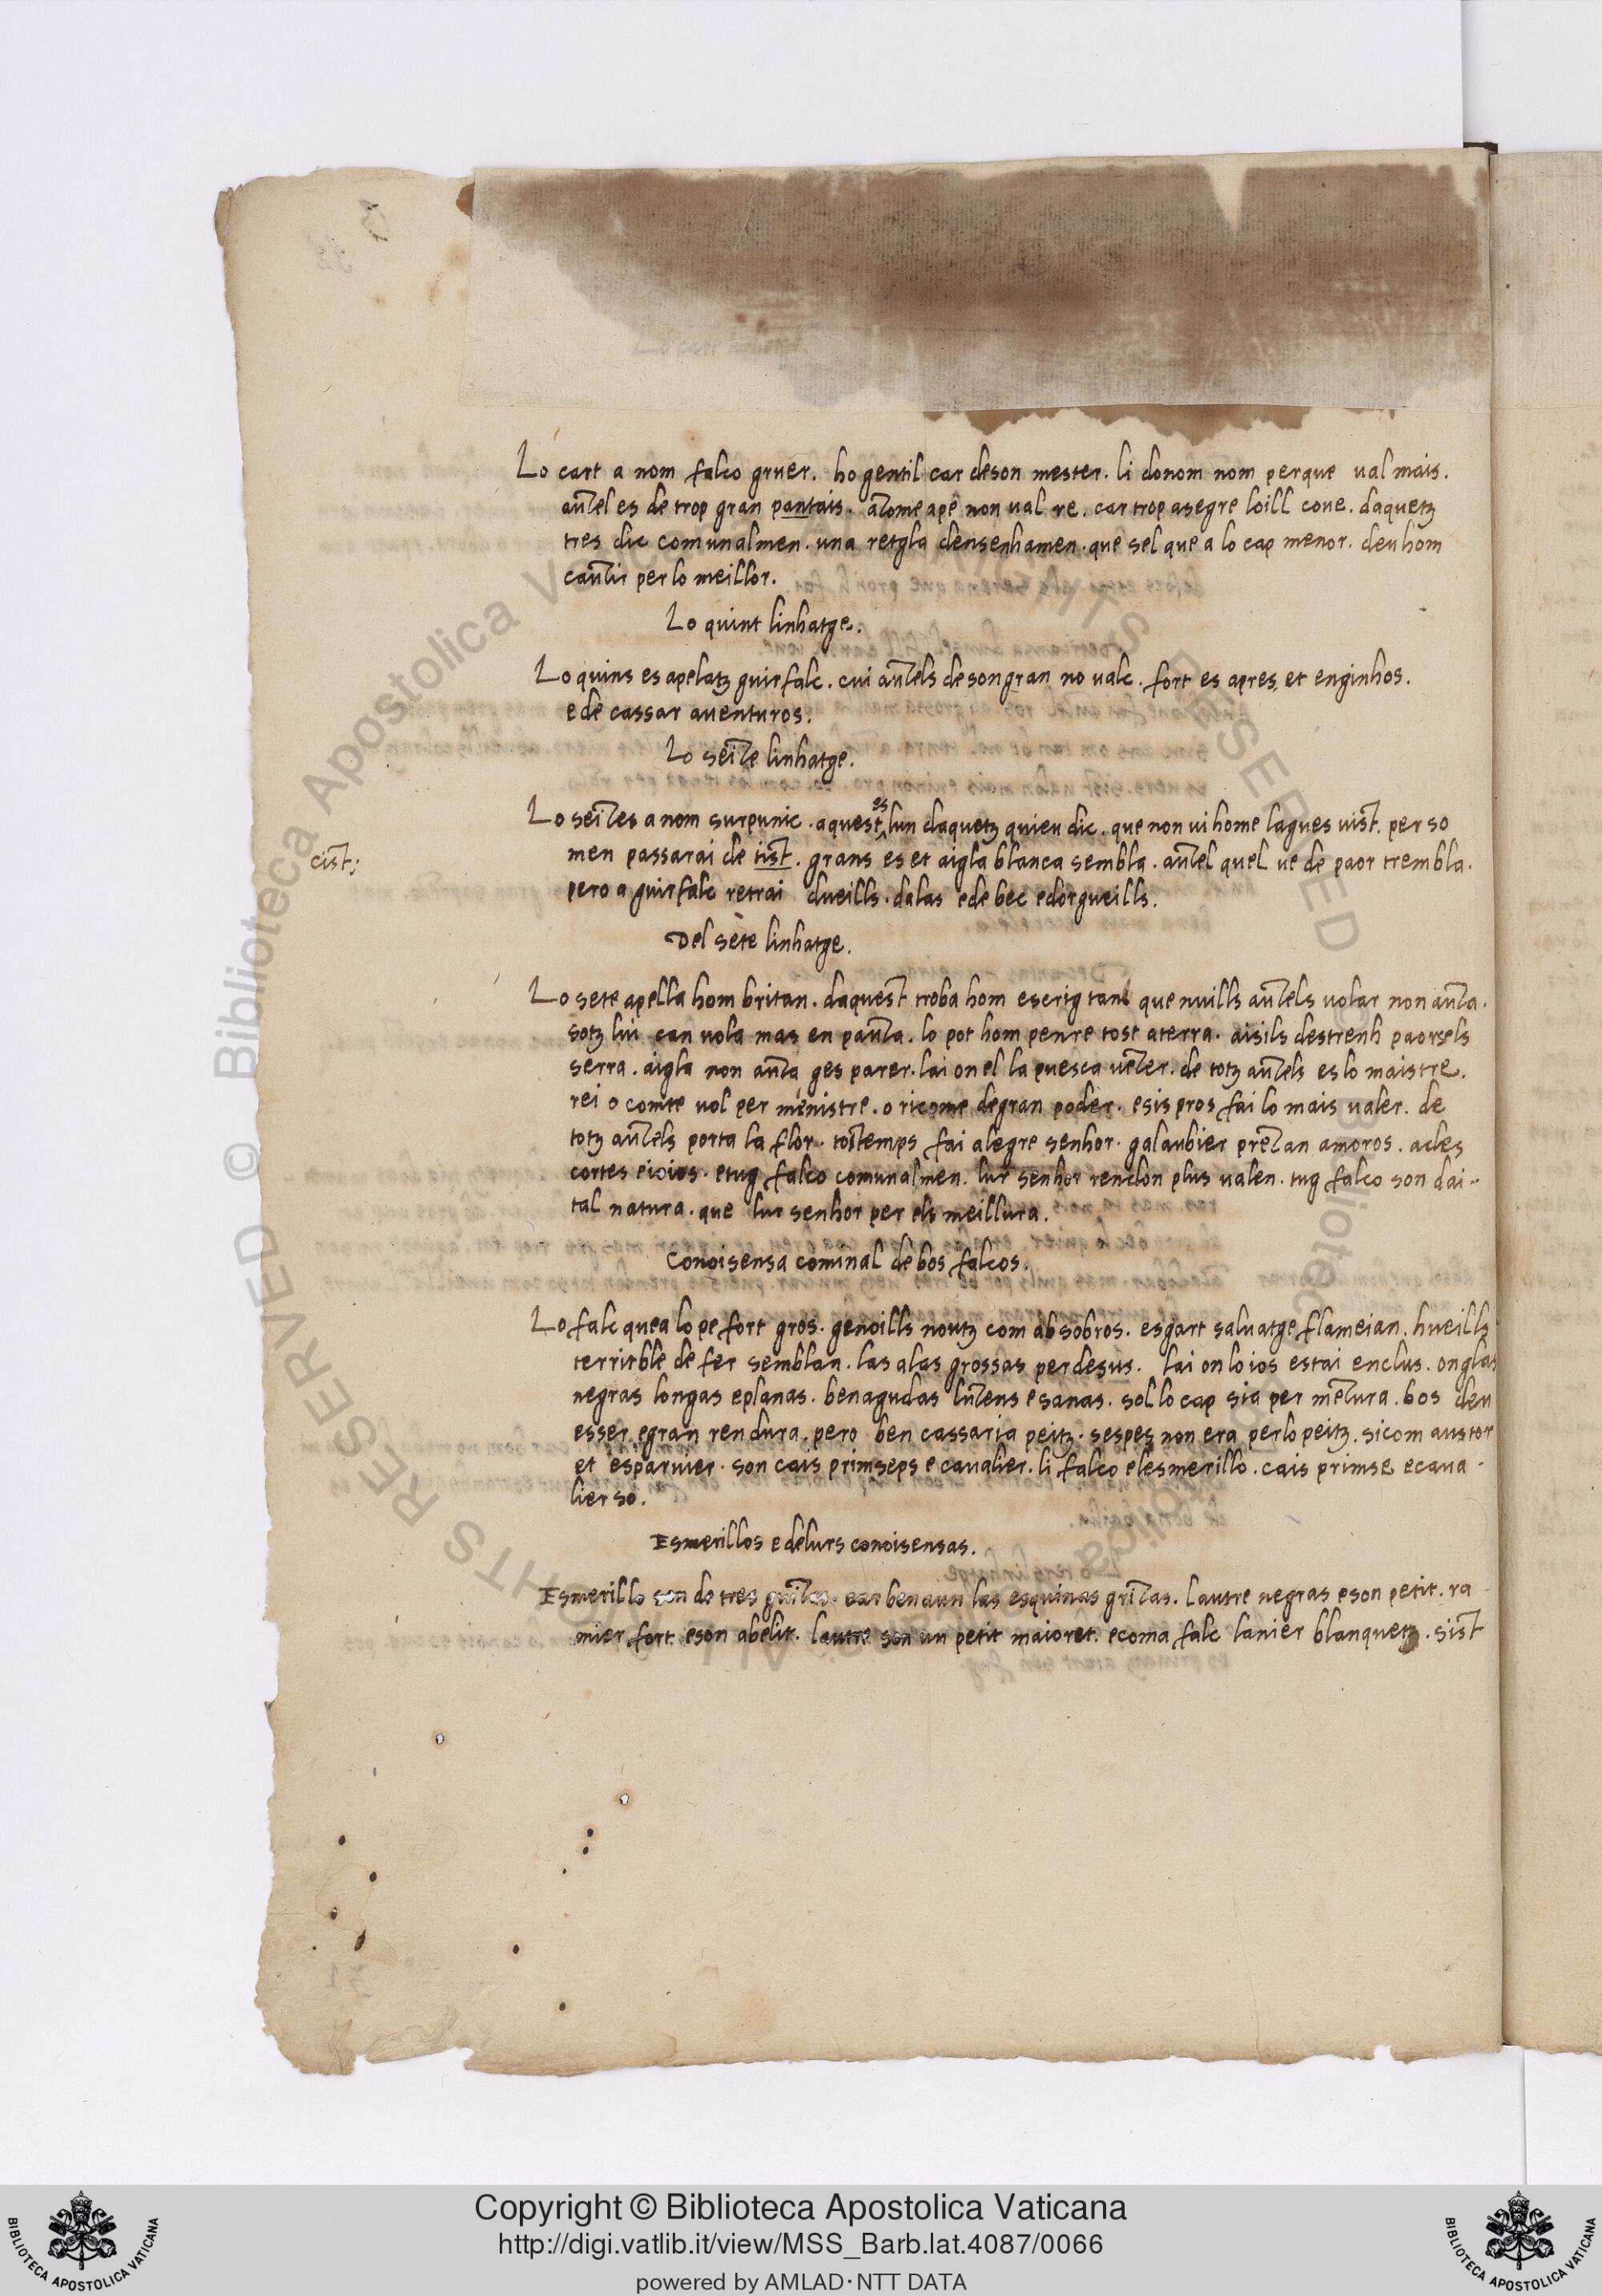 Lo cart a nom falco gruer. ho gentil car deson mester. li donom nom perque ual mais.
autel es de trop gran pantais. atome ape non ual re. car trop asegre loill coue. daquetz
tres dic comunalmen. una retgla densenhamen. que sel que a lo cap menor. deu hom
cautir per lo meillor.
Lo quint linhatge.
Lo quins es apelatz guirfalc. cui autels deson gran no ualc. fort es apres, et enginhos.
e de cassar auenturos.
Lo seite linhatge.
Lo seites a nom surpunic. aquest es lun daquetz quieu dic. que non ui home lagues uist. per so
men passarai de tist. grans es et aigla blanca sembla. autel quel ue de paor trembla.
cist;
pero a guirfalc retrai dueills. dalas ede bec edorgueills.
Del sete linhatge.
Lo sete apella hom britan. daquest troba hom escrig tant que nuills autels uolar non auta.
sotz lui can uola mas en pauta. lo pot hom penre tost aterra. aisils destrenh paorsels
serra. aigla non auta ges parer. lai on el la puesca ueter. de totz autels es lo maistre.
rei o comte uol per menistre. o ricome degran poder. esis pros fai lo mais ualer. de
totz autels porta la flor. tostemps fai alegre senhor. galaubier pretan amoros. ades
cortes eioios. etug falco comunalmen. lur senhor rendon plus ualen. tug falco son dai-
tal natura. que lur senhor per els meillura.
Conoisensa cominal de bos falcos.
Lo falc quea lo pe fort gros. genoills noutz com ab sobros. esgart saluatge flameian. hueills
terrirble de fer semblan. las alas grossas perdesus. lai on lo ios estai enclus. onglas
negras longas eplanas. benagudas lutens esanas. sol lo cap sia per metura. bos deu
esser egran rendura. pero ben cassaria peitz. sespes non era perlo peitz. sicom austor
et esparuier. son cais primseps e caualier. li falco elesmerillo. cais primse ecaua-
lier so.
Esmerillos e delurs conoisensas.
Esmerillo son de tres guitas. car benaun las esquinas gritas. lautre negras eson petit. ra
mier fort. eson abelit. lautre son un petit maioret. ecoma falc lanier blanquetz. sist
Copyright © Biblioteca Apostolica Vaticana
http://digi.vatlib.it/view/MSS_Barb.lat.4087/0066
powered by AMLAD·NTT DATA